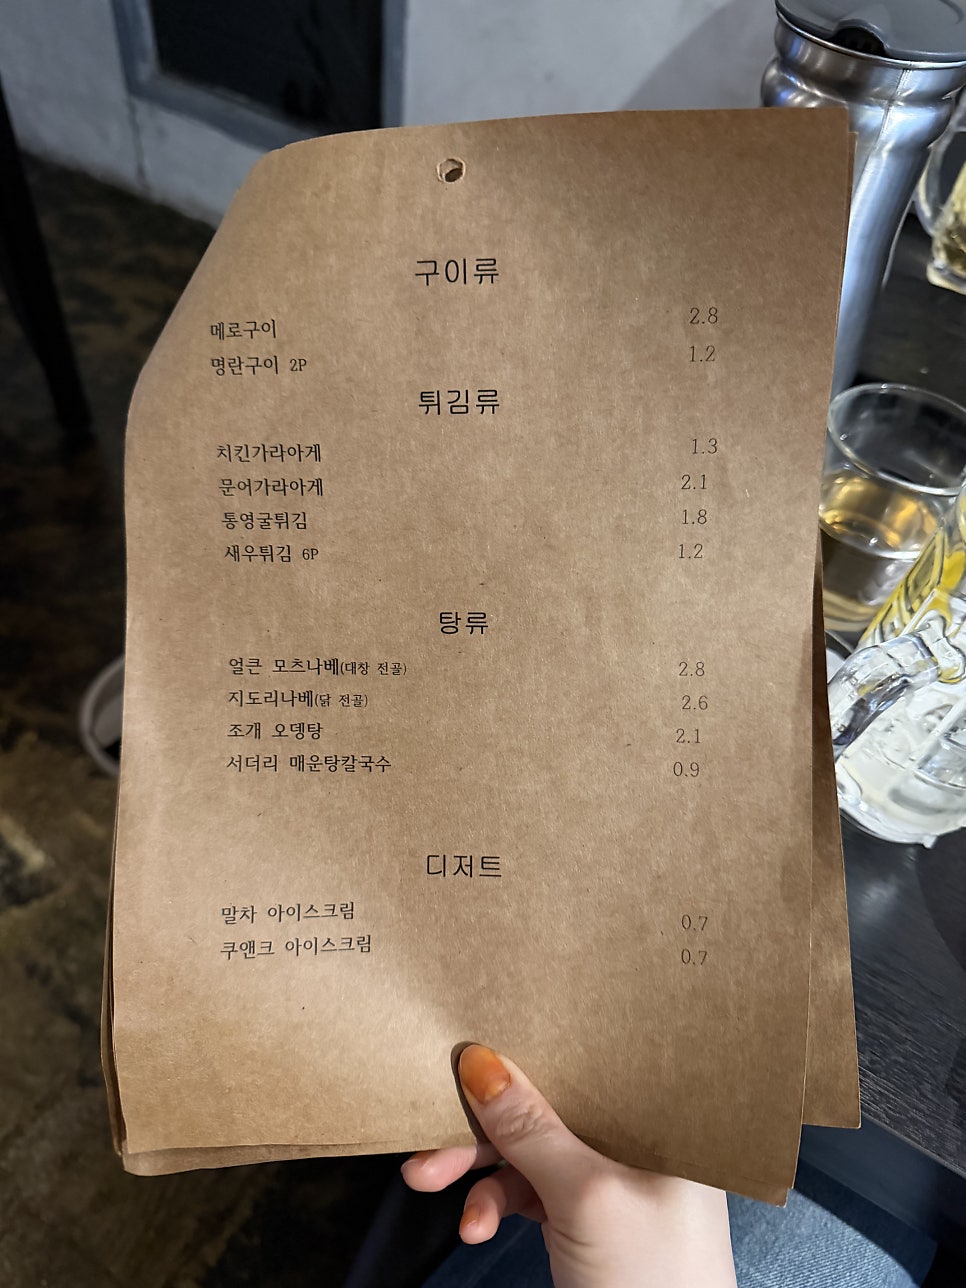 구이류
메로구이 2.8
명란구이 2P 1.2
튀김류
치킨가라아게 1.3
문어가라아게 2.1
통영굴튀김 1.8
새우튀김 6P 1.2
탕류
얼큰 모츠나베(대창 전골) 2.8
지도리나베(닭 전골) 2.6
조개 오뎅탕 2.1
서더리 매운탕칼국수 0.9
디저트
말차 아이스크림 0.7
쿠앤크 아이스크림 0.7